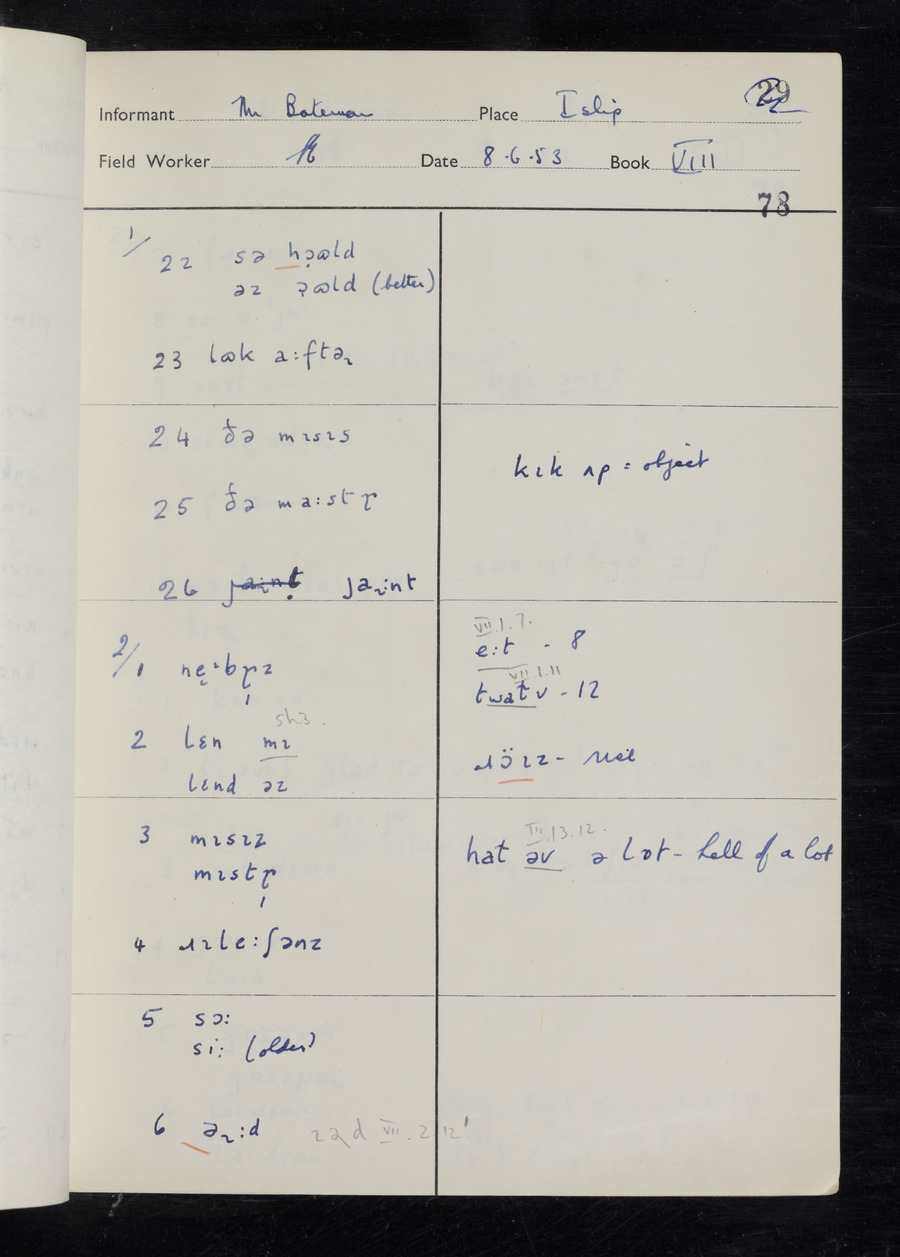 Informant Mr Bateman Place Islip 29
Field Worker Date 8.6.53 Book VIII
78
1/ 22 sə
(better)
23 lʊk a:ftəɹ
24 ðə mɪsɪs
kɪk ʌp = object
25 ðə ma:stɚ
26
VII.1.7.
2/ 1
e:t - 8
VII.1.11
twatv - 12
sh3.
2 lɛn mɪ
lɛnd əz
3 mɪsɪz
mɪstɚ
VII.13.12.
hat əv ə lɒt - hell of a lot
4 ɹɪle:ʃənz
5 sɔ:
si: (older)
6 əɹ:d